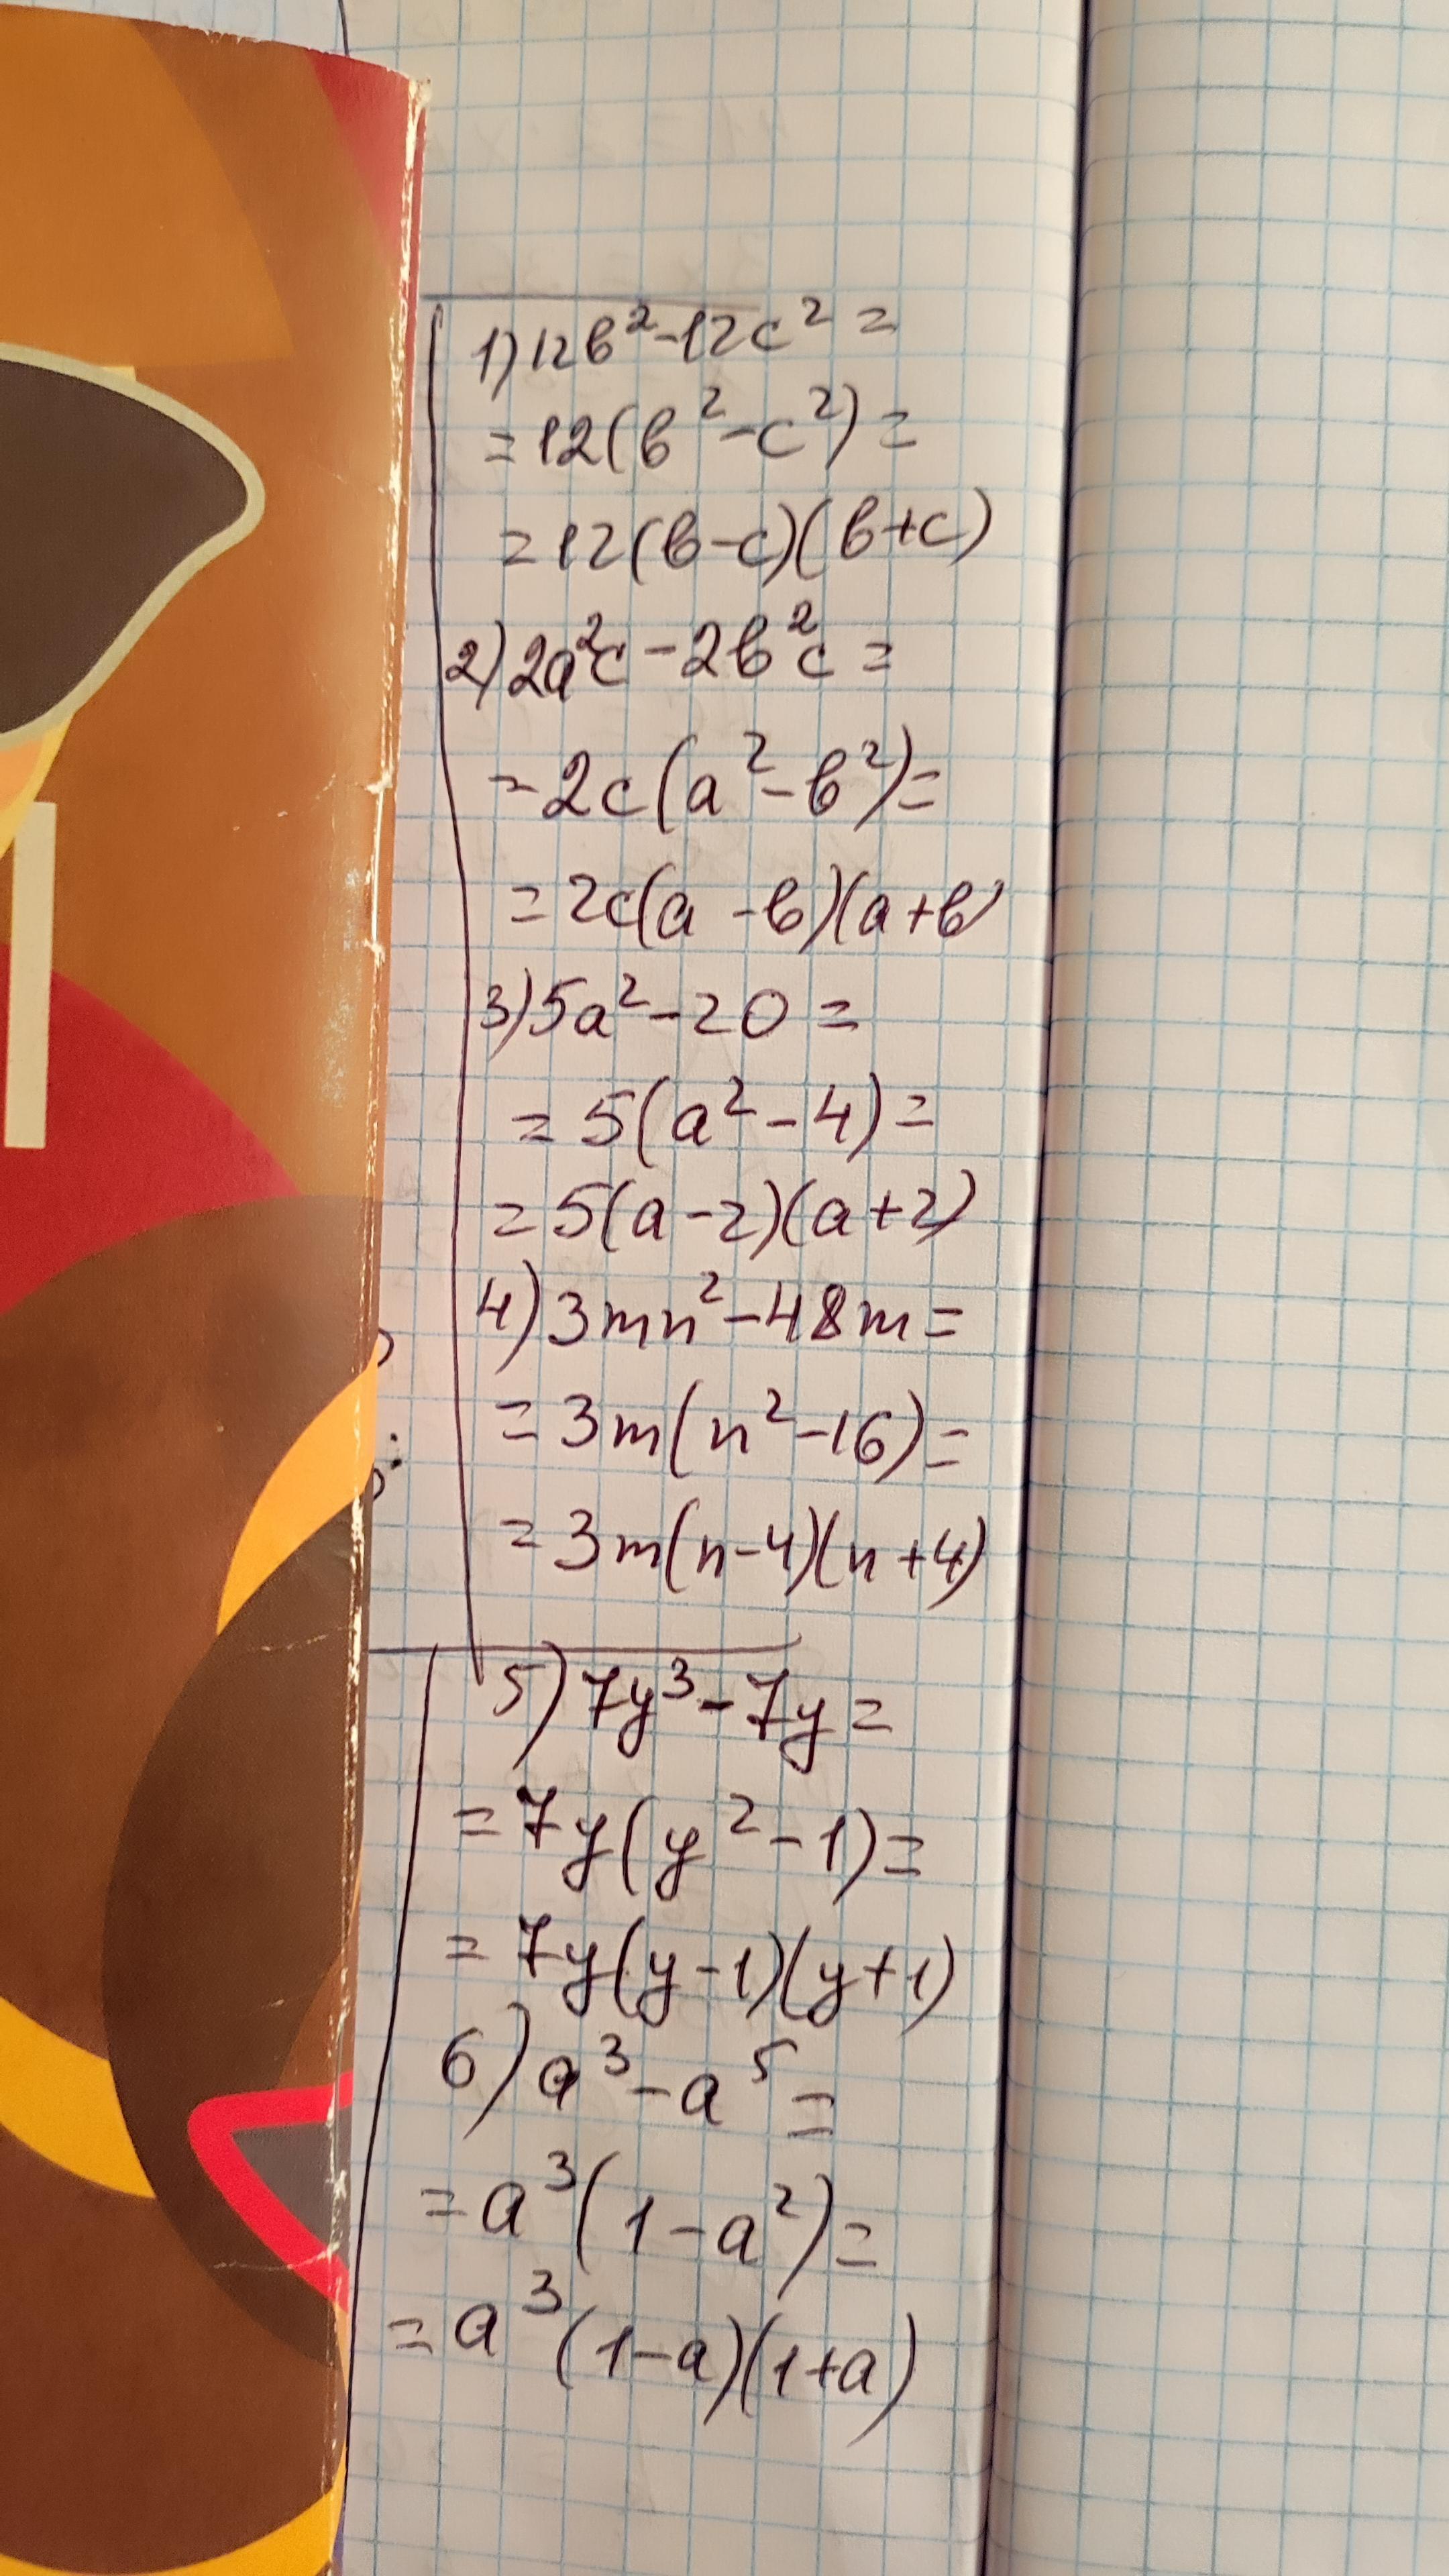 1) 12b²-12c² =
= 12(b²-c²) =
= 12(b-c)(b+c)
2) 2a²c - 2b²c =
= 2c(a²-b²) =
= 2c(a-b)(a+b)
3) 5a²-20 =
= 5(a²-4) =
= 5(a-2)(a+2)
4) 3mn²-48m =
= 3m(n²-16) =
= 3m(n-4)(n+4)
5) 7y³-7y =
= 7y(y²-1) =
= 7y(y-1)(y+1)
6) a³-a⁵ =
= a³(1-a²) =
= a³(1-a)(1+a)